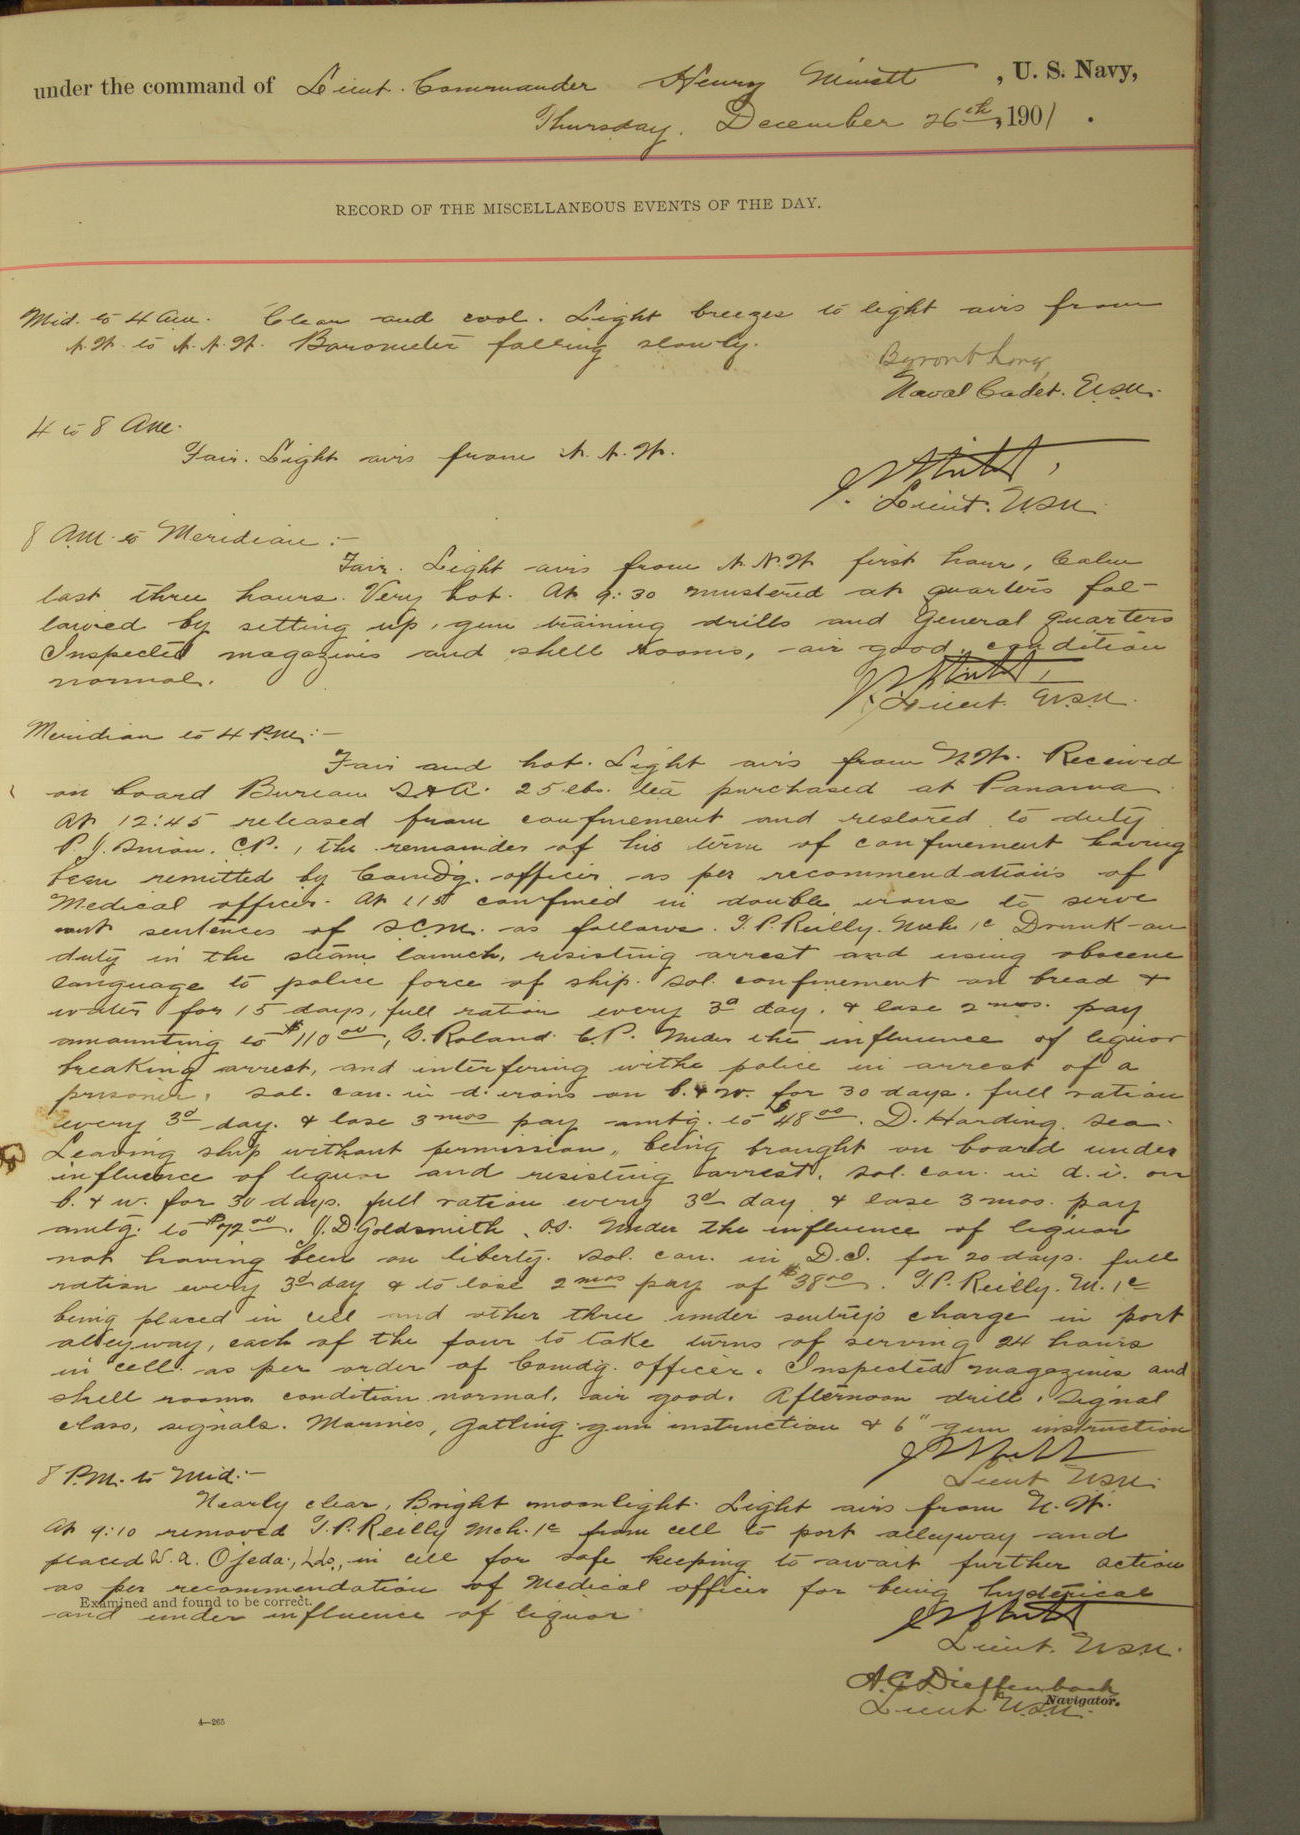 under the command of Lieut. Commander Henry Minett, U. S. Navy,
Thursday, December 26th, 1901.
RECORD OF THE MISCELLANEOUS EVENTS OF THE DAY.
Mid. to 4 a.m. Clear and cool. Light breezes to light airs from
N.W. to N.N.W. Barometer falling slowly.
Byron Long,
Naval Cadet. U.S.N.
4 to 8 A.M.
Fair. Light airs from N.N.W.
Lieut. U.S.N.
8 A.M. to Meridian:-
Fair. Light airs from N.N.W first hour, Calm
last three hours. Very hot. At 9:30 mustered at quarters fol-
lowed by setting up, gun training drills and General Quarters
Inspected magazines and shell rooms, air good, condition
normal.
Lieut. U.S.N.
Meridian to 4 P.M.:-
Fair and hot. Light airs from N.W. Received
on board Bureau S&A. 25 lbs. tea purchased at Panama.
At 12:45 released from confinement and restored to duty
P.J. C.P., the remainder of his term of confinement having
been remitted by Comd'g. officer as per recommendations of
Medical officer. At 1:15 confined in double irons to serve
out sentences of S.C.M. as follows. T.P. Reilly. Mch. 1c Drunk on
duty in the steam launch, resisting arrest and using obscene
language to police force of ship. sol. confinement on bread &
water for 15 days, full ration every 3d day. & lose 2 mos. pay
amounting to $110.00, G. Roland. C.P. Under the influence of liquor
breaking arrest, and interfering withe police in arrest of a
prisoner, sol. con. in d. irons on b. & w. for 30 days. full ration
every 3d day. & lose 3 mos pay amtg. to $48.00. D. Harding. Sea.
Leaving ship without permission, being brought on board under
influence of liquor and resisting arrest. sol. con. in d.i. on
b. & w. for 30 days. full ration every 3d day & lose 3 mos. pay
amtg. to $72.00. J.D. Goldsmith, O.S. Under the influence of liquor
not having been on liberty. Sol. con. in D.I. for 20 days. full
ration every 3d day & to lose 2 mos pay of $38.00. T.P. Reilly. M. 1c
being placed in cell and other three under sentry's charge in port
alleyway, each of the four to take turns of serving 24 hours
in cell as per order of Comdg. officer. Inspected magazines and
shell rooms condition normal, air good. Afternoon drill, Signal
class, signals. Marines, Gatling gun instruction & 6" gun instruction
Lieut U.S.N.
8 P.M. to Mid:-
Nearly clear, Bright moonlight. Light airs from N.W.
At 9:10 removed T.P. Reilly Mch. 1c from cell to port alleyway and
placed W.A. Ojeda., Lds., in cell for safe keeping to await further action
as per recommendation of Medical officer for being hysterical
Examined and found to be correct.
and under influence of liquor
Lieut. U.S.N.
A.C. Dieffenbach
Lieut U.S.N. Navigator.
4—265